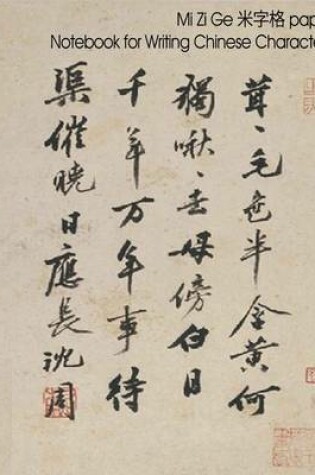 Mi Zi Ge 米字格 pap
Notebook for Writing Chinese Characte
茸〻毛色半含黄何
獨啾〻去母傍白日
千年万年事待
渠催曉日應長沈周